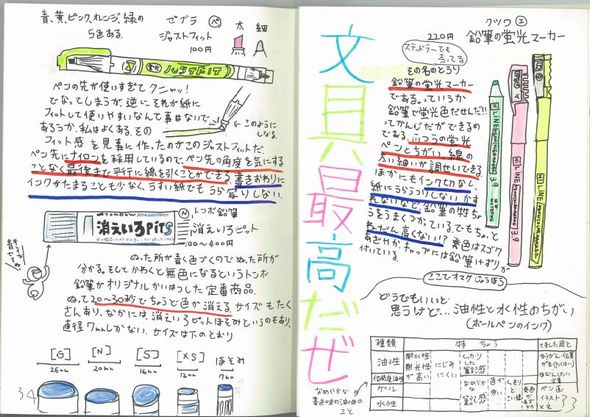 青、黄、ピンク、オレンジ、緑の
5色ある
ゼブラ
ジャストフィット
100円
太 細
JUSTFIT
ペンの先が使いすぎて クニャッ!
でなってしまうが、逆に それが紙に
フィットして使いやすいなんて事はないで
あろうか、私はよくある。その
フィット感を見事に作ったのがこのジャストフィットだ。
ペン先にナイロンを採用しているので、ペン先の角度を気にする
ことなく最後まで平行に線を引くことができる。書きおわりに
インクがたまることも少なく、うすい紙でもうらうつりしない。
←このように
しなる。
消えいろPiTS
トンボ鉛筆
消えいろピット
100〜400円
ぬった所が青く色づくので ぬった所が
分かる。そして かわくと無色になるというトンボ
鉛筆がオリジナルかいはつした定番商品。
ぬって20〜30秒でちょうど色が消える。サイズもたく
さんあり、なかには、消えいろピットほそみというのもあり、
直径7mmしかない。サイズは下のとおり
[G] [N] [S] [XS] ほそみ
7mm
34
文具最高だぜ
クツワ
220円 鉛筆の蛍光マーカー
ステッドラーでも
売ってる
その名のとうり
鉛筆の蛍光マーカー
である。っていうか
鉛筆で蛍光色だせんだ!!
ってかんじだができるの
である。ふつうの蛍光
ペンとちがい、線の
太い細いが調せいできる。
ほかにもインク切れなし、
紙にうらうつりしない、かす
れないなど、鉛筆の特ちょ
うをうまくつかっている。でもちょっと
ねだん高くない? 発色はスゴク
あざやか、キャップには鉛筆けずりが
付いている。
ここでオマケじょうほう
どうでもいいと
思うけど…油性と水性のちがい
(ボールペンのインク)
種類 特ちょう
油性 耐水性 耐光性が高い にじみにくい しっかりした筆記感
低粘度油性
ゲル
水性
なめらかな
33